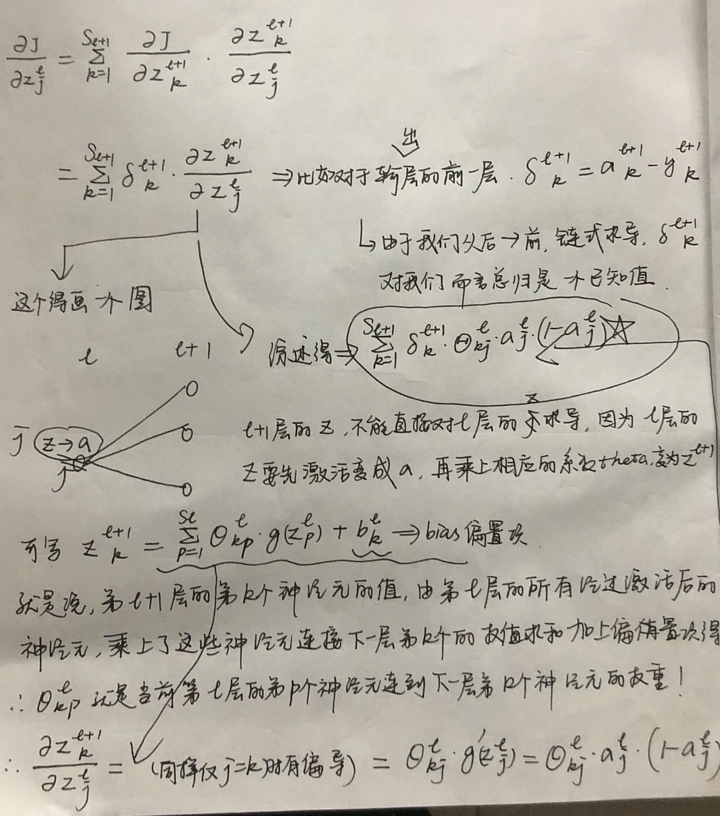 ∂J/∂z_j^l = Σ_{k=1}^{S_{l+1}} ∂J/∂z_k^{l+1} · ∂z_k^{l+1}/∂z_j^l
= Σ_{k=1}^{S_{l+1}} δ_k^{l+1} · ∂z_k^{l+1}/∂z_j^l ⇒ 比如对于输出层的前一层. δ_k^{l+1} = a_k^{l+1} - y_k^{l+1}
↳由于我们从后→前,链式求导, δ_k^{l+1}
对我们而言总归是一个已知值.
这个得画一个图
综述得⇒ Σ_{k=1}^{S_{l+1}} δ_k^{l+1} · Θ_{kj}^l · a_j^l · (1-a_j^l) ☆
l l+1
j z→a
j
l+1层的z,不能直接对l层的z求导,因为l层的
z要先激活变成a,再乘上相应的系数theta,变为z^{l+1}
可写 z_k^{l+1} = Σ_{p=1}^{Sl} Θ_{kp}^l · g(z_p^l) + b_k^l → bias偏置项
就是说,第l+1层的第k个神经元的值,由第l层的所有经过激活后的
神经元,乘上了这些神经元连接下一层第k个的权值求和加上偏置项得
∴ Θ_{kp}^l 就是当前第l层的第p个神经元连到下一层第k个神经元的权重!
∴ ∂z_k^{l+1}/∂z_j^l = (同样仅j=k时有偏导) = Θ_{kj}^l · g'(z_j^l) = Θ_{kj}^l · a_j^l · (1-a_j^l)